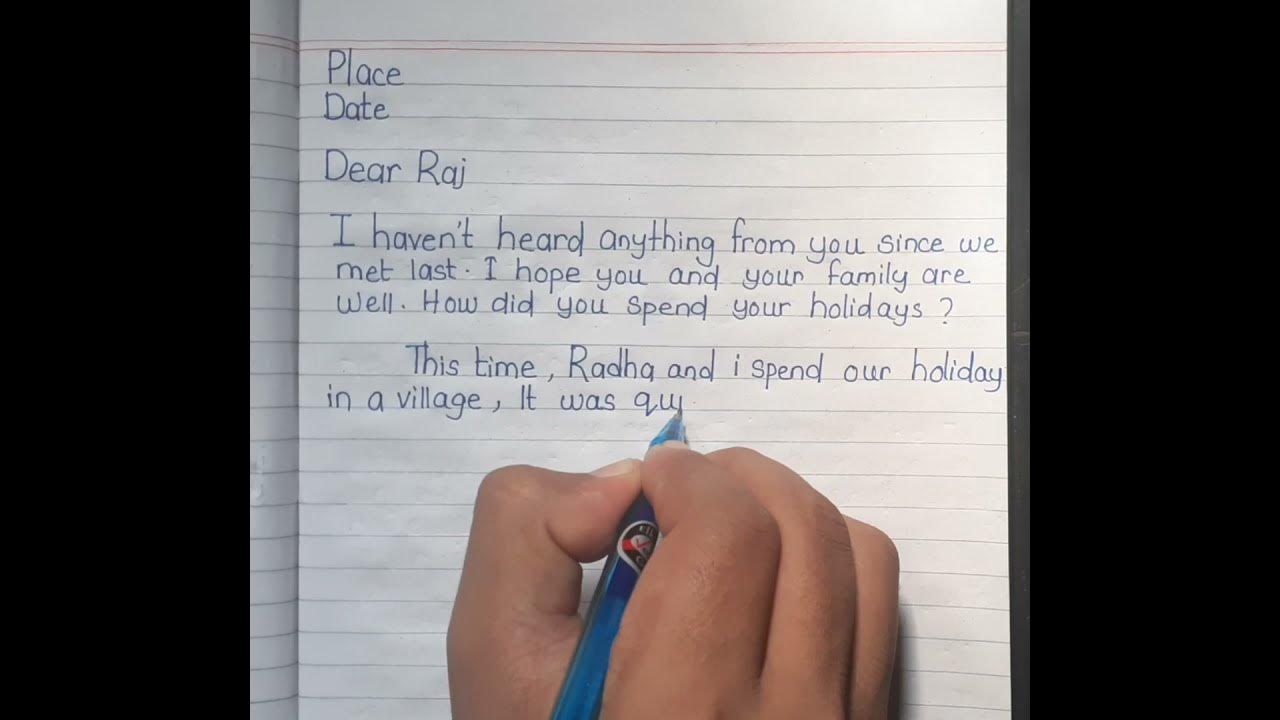 Place
Date
Dear Raj
I haven't heard anything from you since we
met last. I hope you and your family are
well. How did you spend your holidays ?
This time, Radha and i spend our holiday
in a village, It was qui